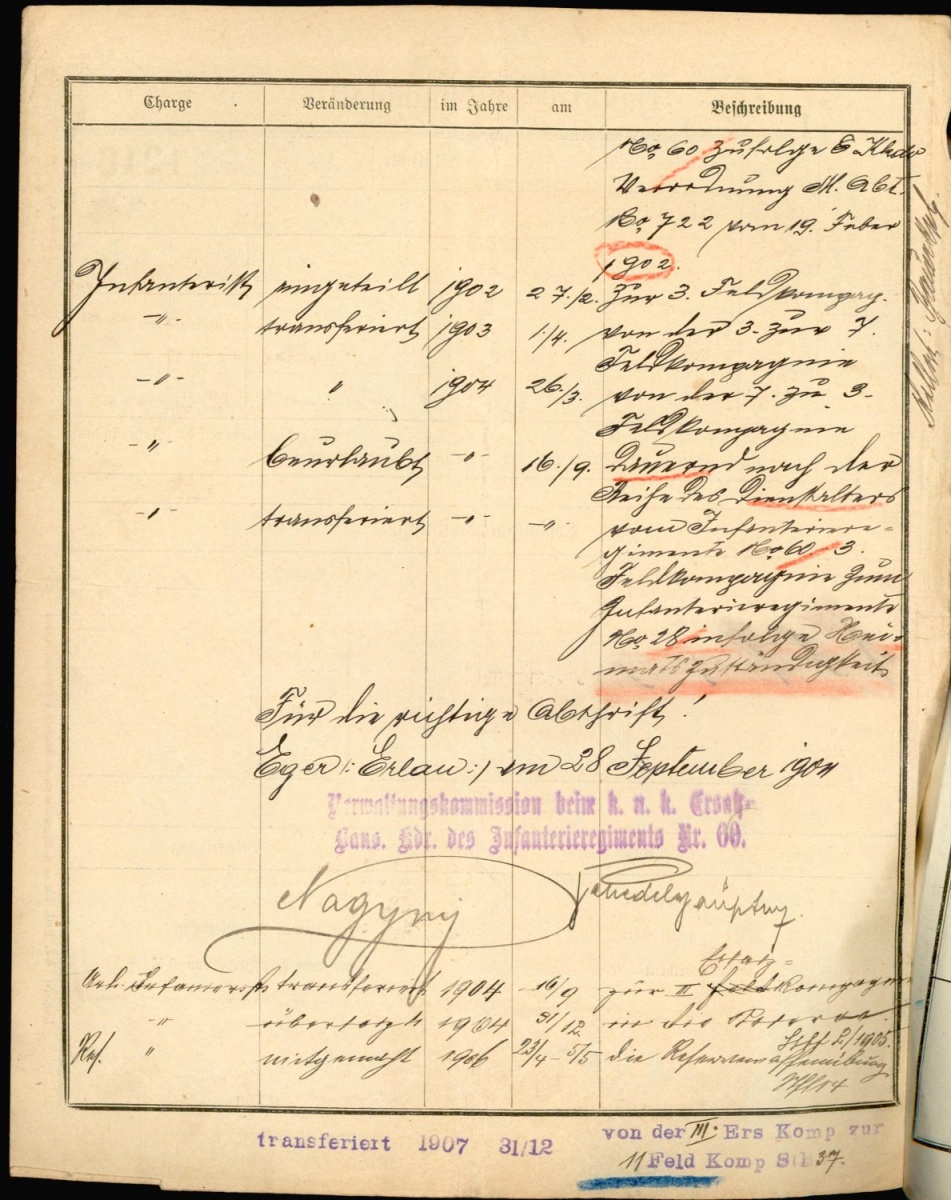 Charge Veränderung im Jahre am Beschreibung
No 60 zufolge
Verordnung M. Abt.
No 722 vom 19. Feber
1902.
Infanterist eingeteilt 1902 27./2. Zur 3. Feldkompag.
-"- transferiert 1903 1./4. von der 3. zur 7.
Feldkompagnie
-"- " 1904 26./3. von der 7. zu 3.
Feldkompagnie
-"- beurlaubt -"- 16./9. dauernd nach der
Reihe des Dienstalters
-"- transferiert -"- -"- vom Infanteriere-
gimente No 60 3.
Feldkompagnie zum
Infanterieregimente
No 28 infolge Hei-
matszuständigkeit
Für die richtige Abschrift!
Eger (: Erlau :) am 28 September 1904
Verwaltungskommission beim k. u. k. Ersatz-
Bans. Kdr. des Infanterieregiments Nr. 60.
Nagy
Ersatz-
Infanterist transferiert 1904 16/9 zur II Feldkompagnie
-"- übersetzt 1904 31/12. in die Reserve.
Res. " mitgemacht 1906 23/4 - 5/5 die Reservewaffenübung
transferiert 1907 31/12 von der III. Ers Komp zur
11 Feld Komp